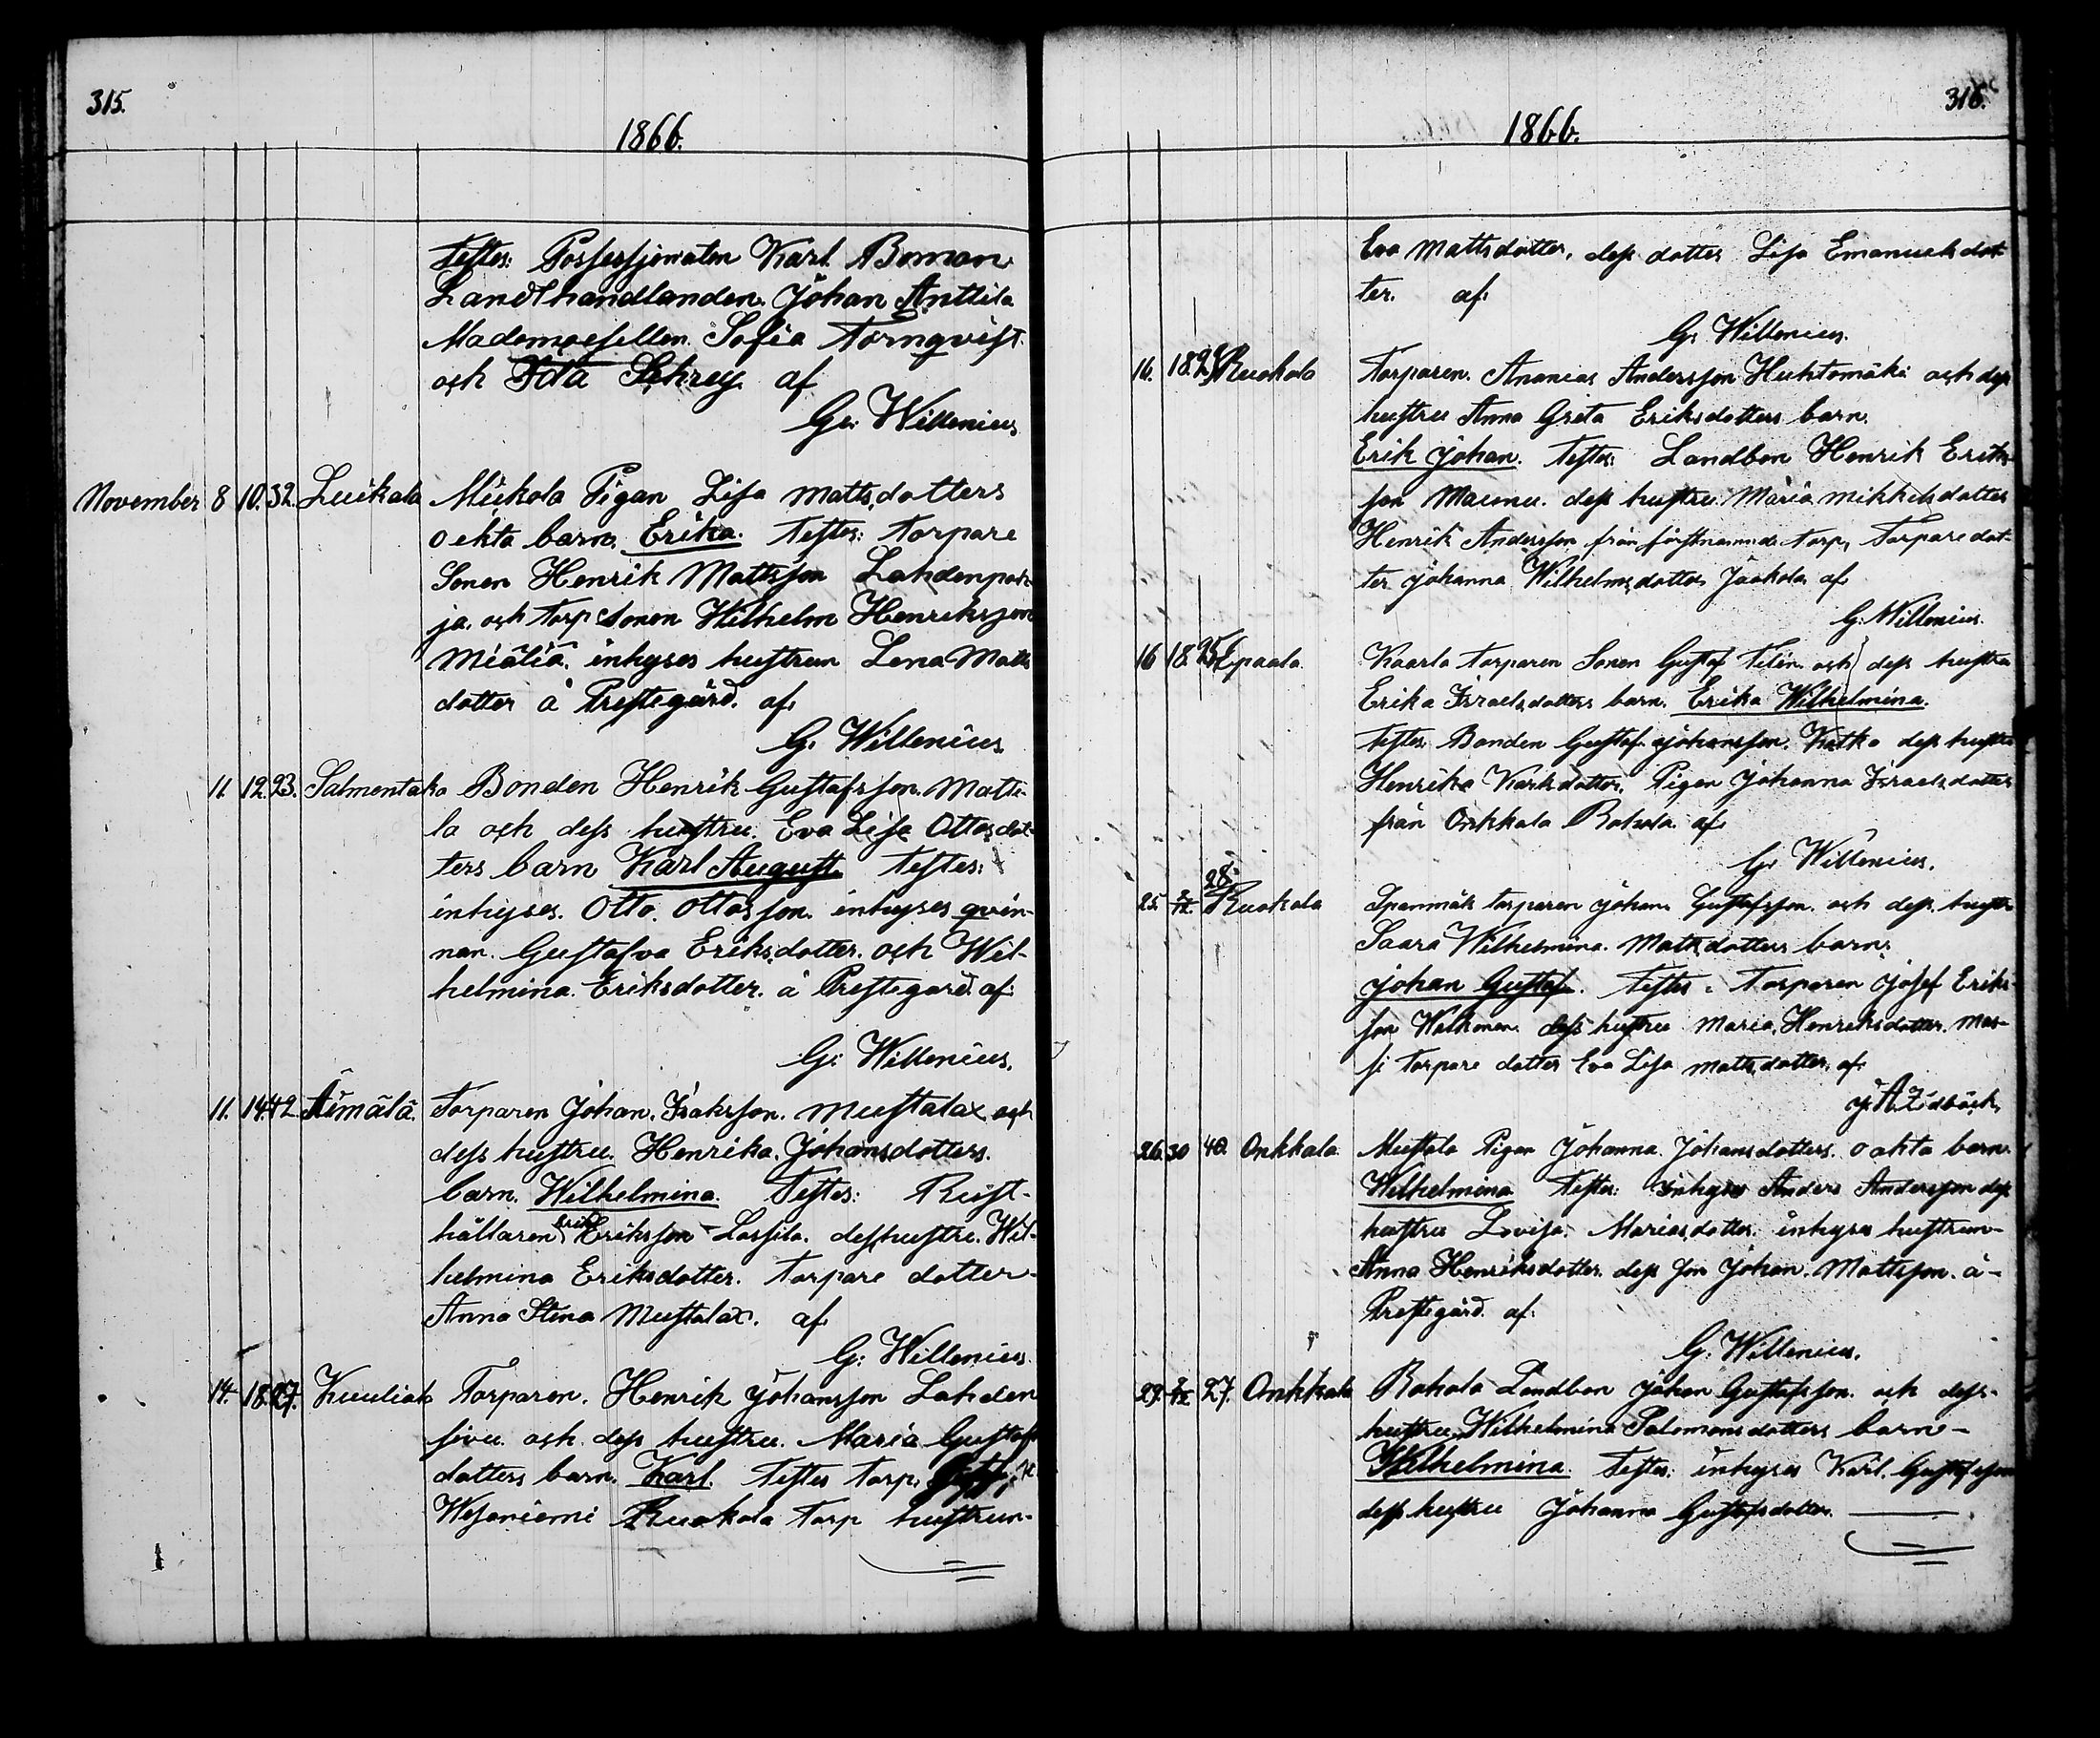 315.
1866.
Testes: Possessjonaten Karl Boman
Landthandlanden. Johan Anttila
Mademoesellen. Sofia Tornqvist
och Ida Schrey af
G: Willenius
November 8 10. 32. Luikala Mickola Pigan Lisa Mattsdotters
oekta barn, Erika. Testes: Torpare
Sonen Henrik Mattsson Lahdenpoh
ja, och Torp Sonen Wilhelm Henriksson
inhyses hustrun Lena Matts
dotter å Prestegård. af.
G. Willenius
11. 12. 23. Salmentaka Bonden Henrik Gustafsson. Matti
la och dess hustru. Eva Lisa Ottosdot
ters barn Karl August. Testes:
inhyses. Otto. Ottosson. inhyses qvin-
nan. Gustafva Eriksdotter. och Wil-
helmina. Eriksdotter. å Prestegård. af:
G: Willenius.
11. 14. 42. Äimälä. Torparen Johan. Isaksson. Mustalax och
dess hustru. Henrika. Johansdotters.
barn. Wilhelmina. Testes: Rust-
hållaren Erik Eriksson Lassila. dess hustru. Wil-
helmina Eriksdotter. Torpare dotter
Anna Stina Mustalax. af.
G: Willenius.
14. 18. 27. Kuuliala Torparen. Henrik Johansson Lahden
sivu. och. dess hustru. Maria Gustafs
dotters barn. Karl. Testes Torp.
Wesaniemi Ruokola Torp hustrun.
316.
1866.
Eva Mattsdotter, dess dotter Lisa Emanuelsdot
ter. af.
G. Willenius.
16. 18. Ruokola Torparen. Ananias Andersson Huhtamäki och dess
hustru Anna Greta Eriksdotters barn.
Erik Johan. Testes: Landbon Henrik Eriks
son Maunu. dess hustru. Maria Mikkelsdotter
Henrik Andersson från förstnämnde torp, Torpare dot
ter Johanna Wilhelmsdotter Jaakola af
G. Willenius.
16 18. 25. Epaala. Kaarla torparen Sonen Gustaf Telen och dess hustru
Erika Israelsdotters barn. Erika Wilhelmina.
Testes. Bonden Gustaf Johansson. Katko dess hustru
Henrika Karlsdotter, Pigan Johanna Israelsdotter
från Onkkala Rahola. af.
G: Willenius.
25. 28. Ruokola torparen Johan Gustafsson. och dess hustru
Saara Wilhelmina. Mattsdotters barn.
Johan Gustaf. Testes. Torparen Josef Eriks-
son Walkonen. dess hustru Maria. Henriksdotter. Mas-
si Torpare dotter Eva Lisa Mattsdotter. af.
26. 30 40. Onkkala Mustala Pigan Johanna Johansdotters. oakta barn.
Wilhelmina Testes: Inhyses Anders Andersson dess
hustru Lovisa. Mariasdotter. inhyses hustrun
Anna Henriksdotter. dess son Johan. Mattsson. å-
Prestegård. af:
G. Willenius.
29. 27. Onkkala Rahola Landbon Johan Gustafsson. och dess-
hustru, Wilhelmina Salomonsdotters barn-
Wilhelmina. Testes: inhyses Karl. Gustafsson
dess hustru Johanna Gustafsdotter.